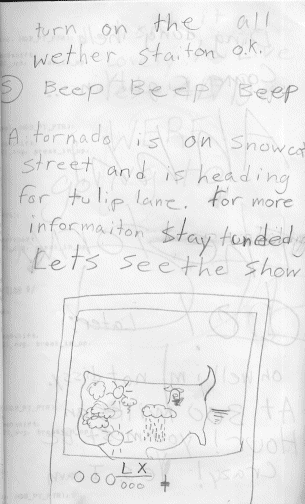 turn on the all
wether staiton o.k.
5 Beep Beep Beep
A tornado is on snowcat
street and is heading
for tulip lane. for more
informaiton stay tunded
Lets see the show
L X